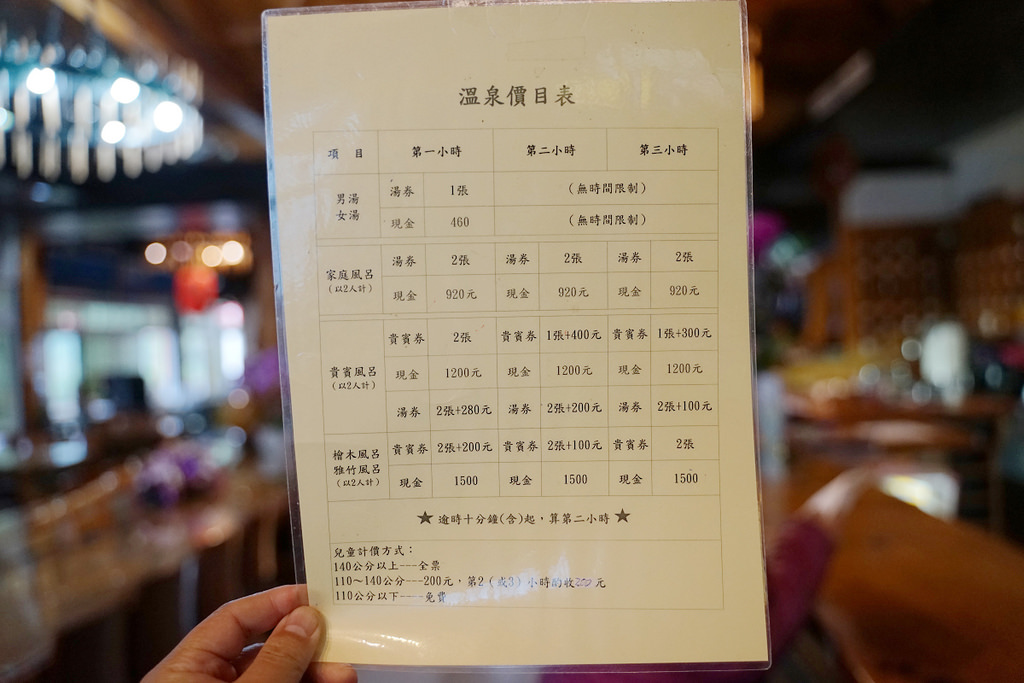 溫泉價目表
項 目 第一小時 第二小時 第三小時
男湯
女湯
湯券 1張 (無時間限制)
現金 460 (無時間限制)
家庭風呂
(以2人計)
湯券 2張 湯券 2張 湯券 2張
現金 920元 現金 920元 現金 920元
貴賓風呂
(以2人計)
貴賓券 2張 貴賓券 1張+400元 貴賓券 1張+300元
現金 1200元 現金 1200元 現金 1200元
湯券 2張+280元 湯券 2張+200元 湯券 2張+100元
檜木風呂
雅竹風呂
(以2人計)
貴賓券 2張+200元 貴賓券 2張+100元 貴賓券 2張
現金 1500 現金 1500 現金 1500
★逾時十分鐘(含)起，算第二小時★
兒童計價方式：
140公分以上---全票
110～140公分---200元，第2（或3）小時酌收200元
110公分以下----免費